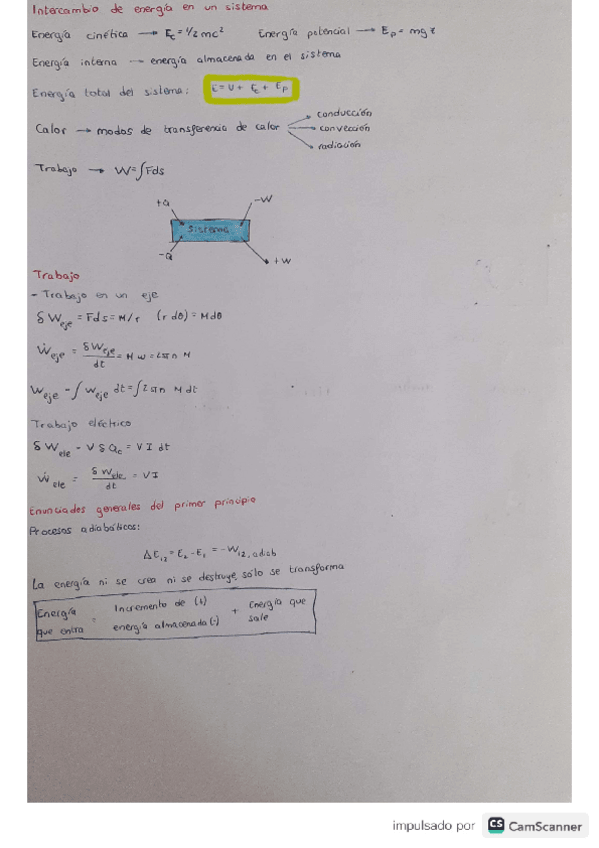 Intercambio de energía en un sistema
Energía cinética → Ec = 1/2 mc² Energía potencial → Ep = mgz
Energía interna → energía almacenada en el sistema
Energía total del sistema: E = U + Ec + Ep
Calor → modos de transferencia de calor
conducción
convección
radiación
Trabajo → W = ∫Fds
+Q -W
Sistema
-Q +W
Trabajo
- Trabajo en un eje
δWeje = Fds = M/r (r dθ) = Mdθ
Ẇeje = δWeje/dt = M w = 2π n M
Weje = ∫ Ẇeje dt = ∫2πn M dt
Trabajo eléctrico
δWele = V δQc = V I dt
Ẇele = δWele/dt = VI
Enunciados generales del primer principio
Procesos adiabáticos:
ΔE12 = E2 - E1 = -W12,adiab
La energía ni se crea ni se destruye, sólo se transforma
Energía que entra = Incremento de (+) energía almacenada (-) + Energía que sale
impulsado por CS CamScanner